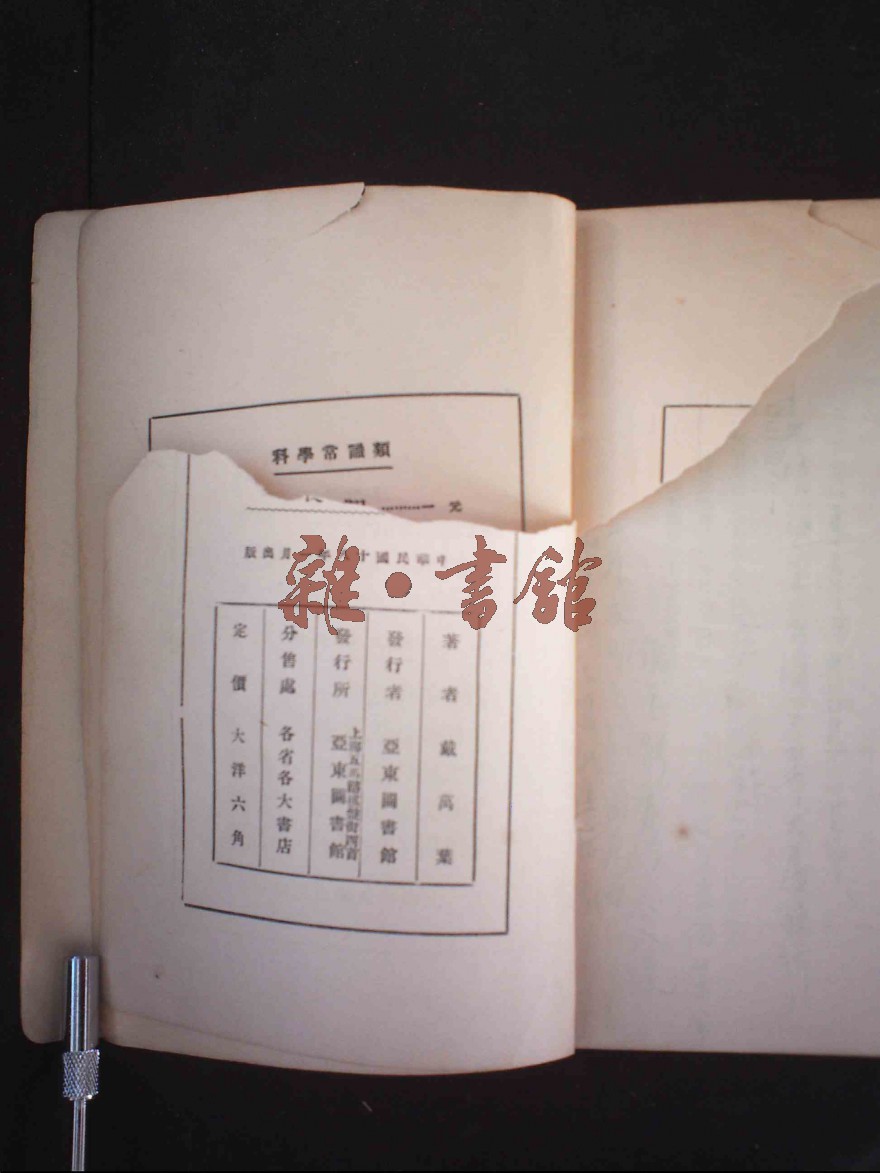 科學常識類
元
中華民國十 年 月出版
著者 戴萬葉
發行者 亞東圖書館
發行所 上海五馬路棋盤街西首
亞東圖書館
分售處 各省各大書店
定價 大洋六角
雜·書館